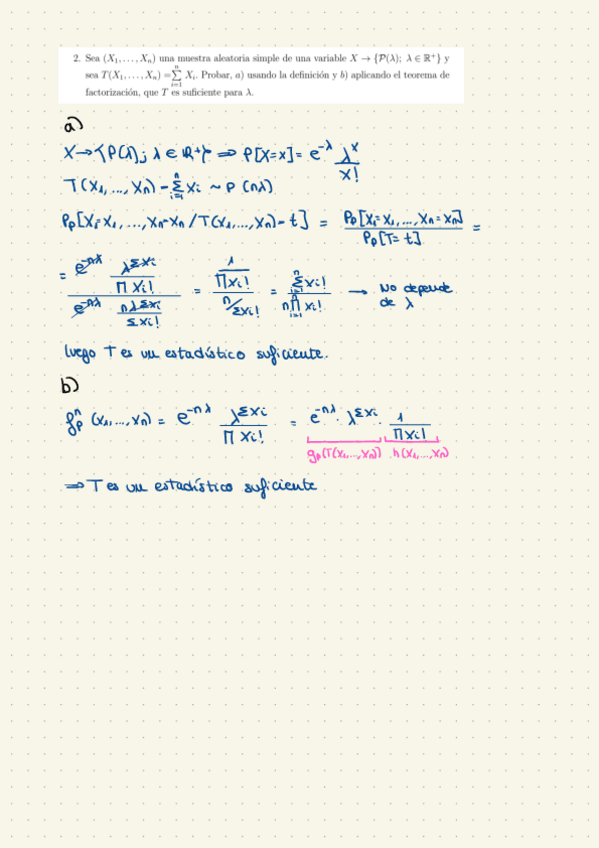 2. Sea (X₁, . . . , Xₙ) una muestra aleatoria simple de una variable X → {𝒫(λ); λ ∈ ℝ⁺} y
sea T(X₁, . . . , Xₙ) = ∑ᵢ₌₁ⁿ Xᵢ. Probar, a) usando la definición y b) aplicando el teorema de
factorización, que T es suficiente para λ.
a)
X → {P(λ); λ ∈ ℝ⁺} ⇒ P[X=x] = e^{-λ} λ^x / x!
T(X₁, ..., Xₙ) = ∑ᵢ₌₁ⁿ Xᵢ ~ P(nλ)
Pₚ[X₁=x₁, ..., Xₙ=xₙ / T(X₁, ..., Xₙ) = t] = Pₚ[X₁=x₁, ..., Xₙ=xₙ] / Pₚ[T=t] =
= (e^{-nλ} λ^{Σxi} / ∏ xi!) / (e^{-nλ} nλ^{Σxi} / Σxi!) = (1 / ∏xi!) / (n / Σxi!) = ∑ᵢ₌₁ⁿ xi! / n ∏ᵢ₌₁ⁿ xi! → No depende de λ
luego T es un estadístico suficiente.
b)
fₚⁿ (x₁, ..., xₙ) = e^{-nλ} λ^{Σxi} / ∏ xi! = e^{-nλ} · λ^{Σxi} · 1 / ∏xi!
gₚ(T(x₁, ..., xₙ)) h(x₁, ..., xₙ)
⇒ T es un estadístico suficiente